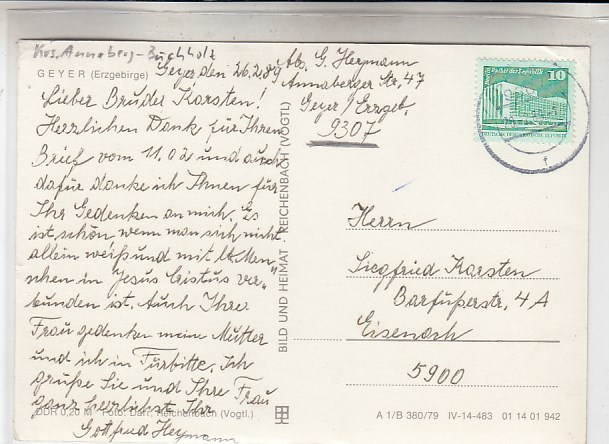 Krs. Annaberg-Buchholz
GEYER (Erzgebirge)
Geyer den 26.2.89
Lieber Bruder Karsten!
Herzlichen Dank für Ihren
Brief vom 11.02 und auch
dafür danke ich Ihnen für
Ihr Gedenken an mich. Es
ist schön, wenn man sich nicht
allein weiß und mit Men-
schen in "Jesus Cristus ver-
bunden ist." Auch Ihre
Frau gedenken meine Mutter
und ich in Fürbitte. Ich
grüße Sie und Ihre Frau
ganz herzlichst Ihr
Gottfried Heymann
DDR 0,20 M Foto: Darr, Reichenbach (Vogtl.)
BILD UND HEIMAT · REICHENBACH (VOGTL)
Abs. G. Heymann
Annaberger Str. 47
Geyer Erzgeb.
9307
Berlin, Palast der Republik
10
DEUTSCHE DEMOKRATISCHE REPUBLIK
Herrn
Siegfried Karsten
Barfüßerstr. 4 A
Eisenach
5900
A 1/B 380/79 IV-14-483 01 14 01 942